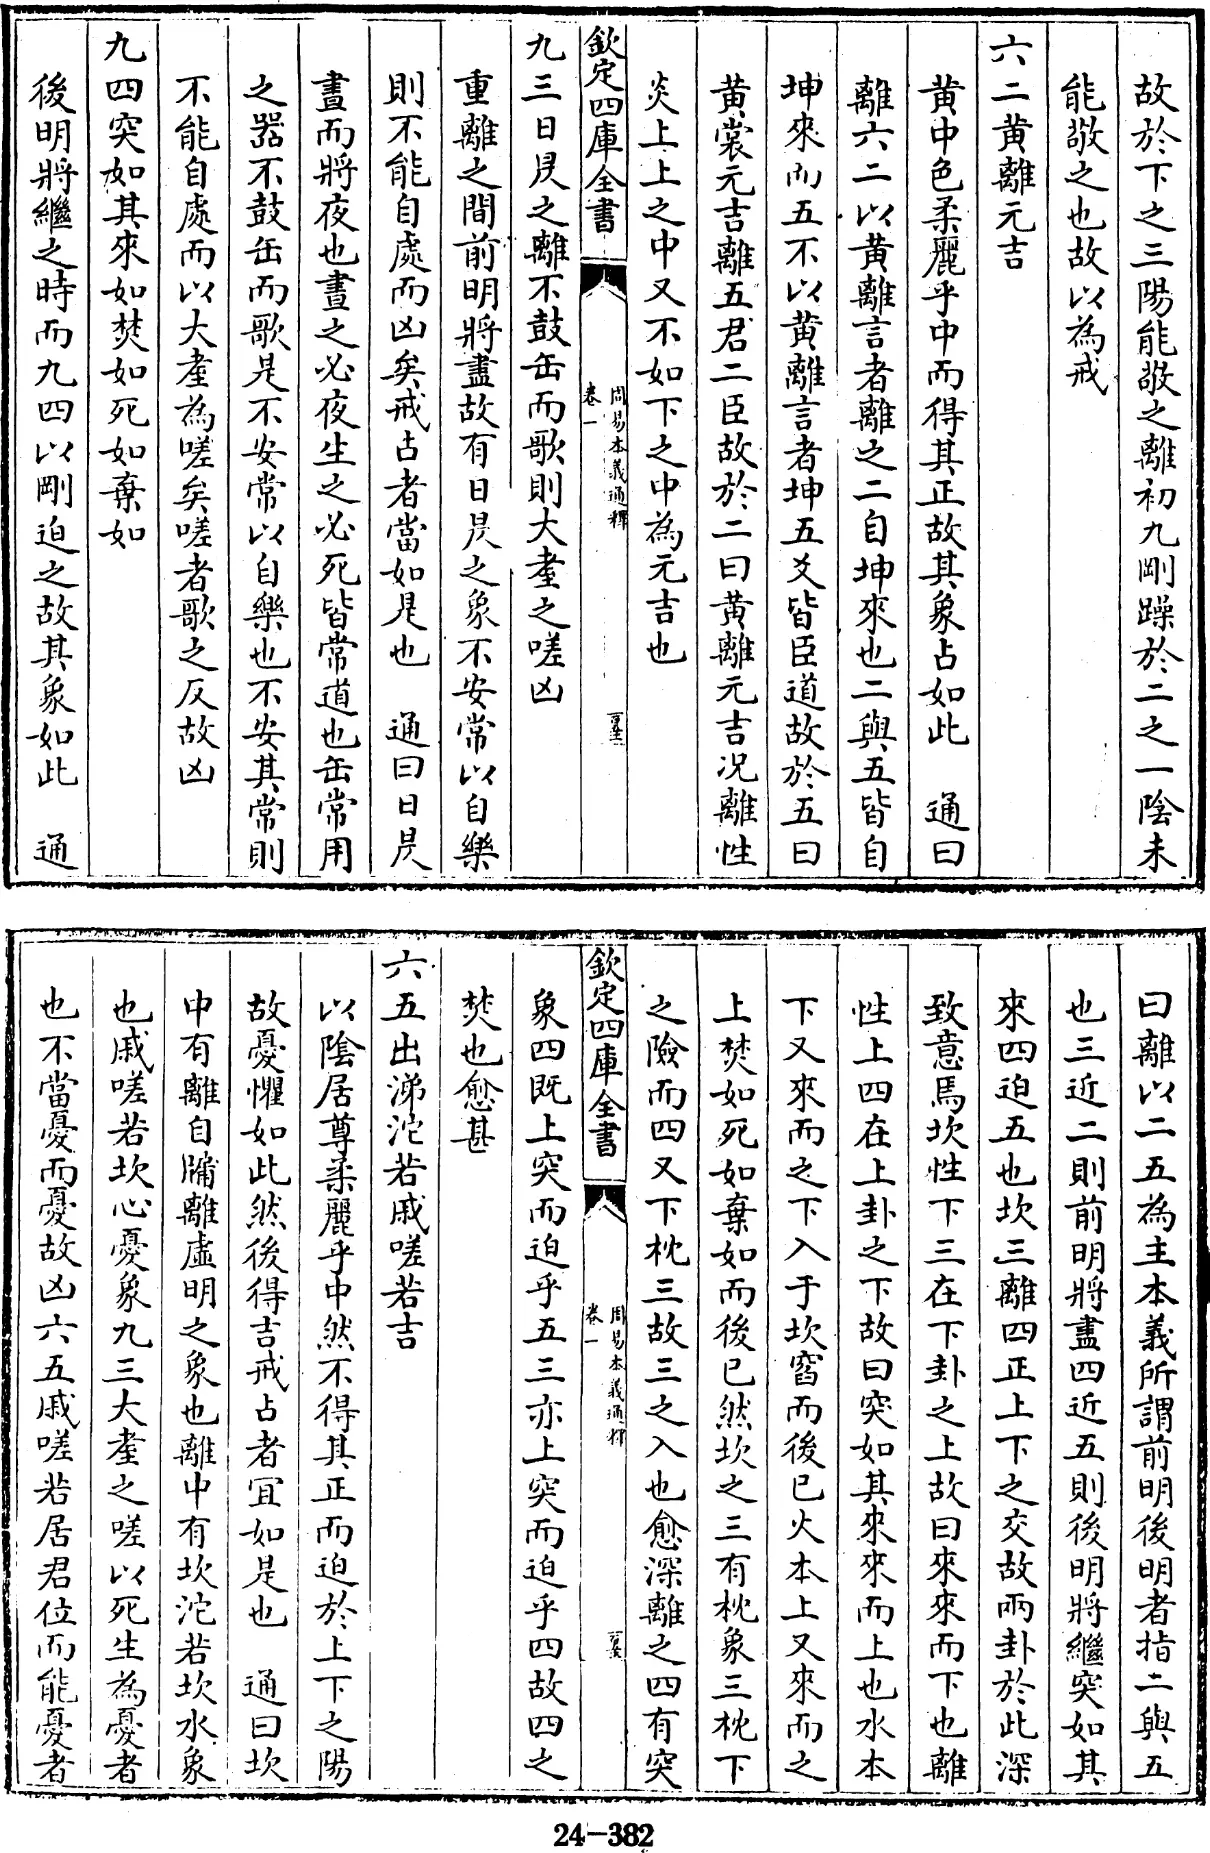 故於下之三陽能敬之離初九剛躁於二之一陰未
能敬之也故以為戒
六二黄離元吉
黄中色柔麗乎中而得其正故其象占如此　通曰
離六二以黄離言者離之二自坤來也二與五皆自
坤來而五不以黄離言者坤五爻皆臣道故於五曰
黄裳元吉離五君二臣故於二曰黄離元吉况離性
炎上上之中又不如下之中為元吉也
欽定四庫全書
周易本義通釋
卷一
九三日昃之離不鼓缶而歌則大耋之嗟凶
重離之間前明將盡故有日昃之象不安常以自樂
則不能自處而凶矣戒占者當如是也　通曰日昃
晝而將夜也晝之必夜生之必死皆常道也缶常用
之器不鼓缶而歌是不安常以自樂也不安其常則
不能自處而以大耋為嗟矣嗟者歌之反故凶
九四突如其來如焚如死如棄如
後明將繼之時而九四以剛迫之故其象如此　通
曰離以二五為主本義所謂前明後明者指二與五
也三近二則前明將盡四近五則後明將繼突如其
來四迫五也坎三離四正上下之交故兩卦於此深
致意焉坎性下三在下卦之上故曰來來而下也離
性上四在上卦之下故曰突如其來來而上也水本
下又來而之下入于坎窞而後已火本上又來而之
上焚如死如棄如而後已然坎之三有枕象三枕下
之險而四又下枕三故三之入也愈深離之四有突
象四既上突而迫乎五三亦上突而迫乎四故四之
欽定四庫全書
周易本義通釋
卷一
焚也愈甚
六五出涕沱若戚嗟若吉
以陰居尊柔麗乎中然不得其正而迫於上下之陽
故憂懼如此然後得吉戒占者宜如是也　通曰坎
中有離自牖離虛明之象也離中有坎沱若坎水象
也戚嗟若坎心憂象九三大耋之嗟以死生為憂者
也不當憂而憂故凶六五戚嗟若居君位而能憂者
24-382